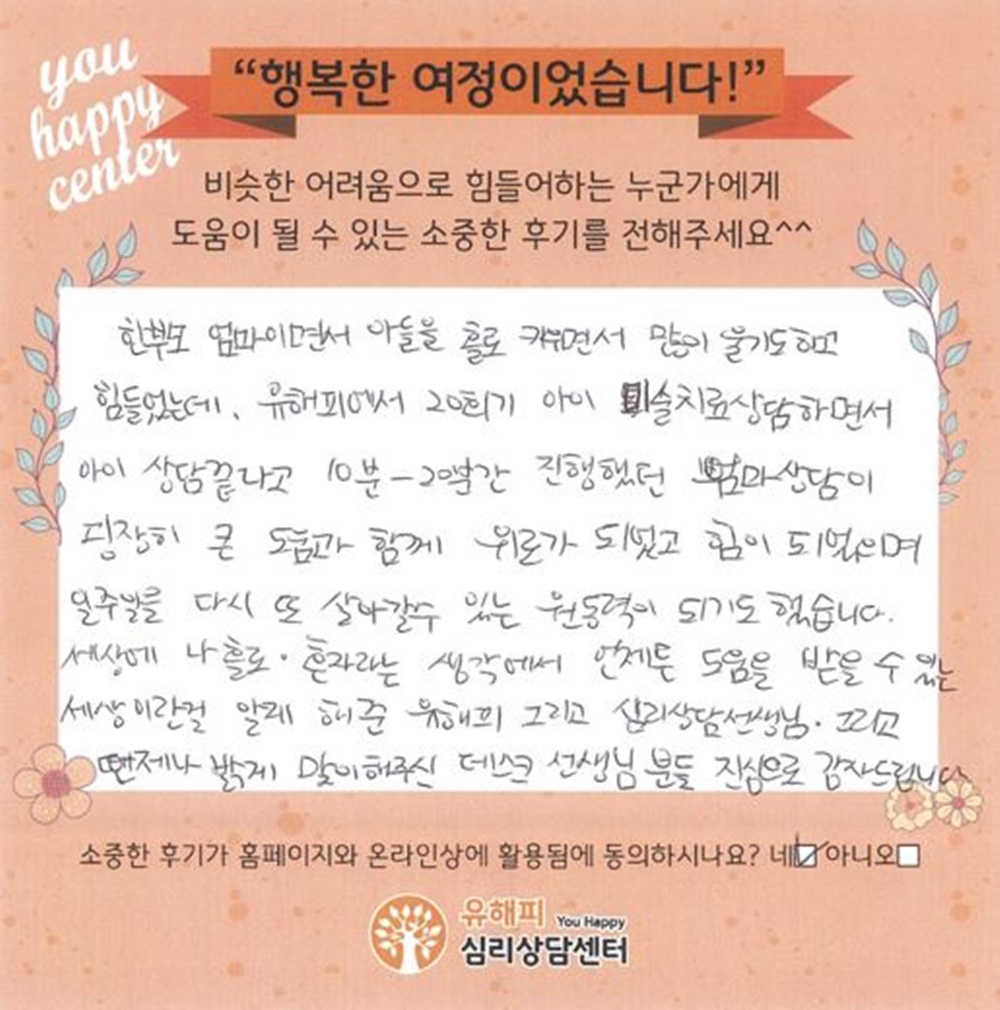 you
happy
center
“행복한 여정이었습니다!”
비슷한 어려움으로 힘들어하는 누군가에게
도움이 될 수 있는 소중한 후기를 전해주세요^^
한부모 엄마이면서 아들을 홀로 키우면서 많이 울기도하고
힘들었는데, 유해피에서 20회기 아이 미술치료상담하면서
아이 상담끝나고 10분-20분간 진행했던 엄마상담이
굉장히 큰 도움과 함께 위로가 되었고 힘이 되었으며
일주일을 다시 또 살아갈수 있는 원동력이 되기도 했습니다.
세상에 나 홀로·혼자라는 생각에서 언제든 도움을 받을 수 있는
세상이란걸 알게 해준 유해피 그리고 심리상담선생님. 그리고
언제나 밝게 맞이해주신 데스크 선생님 분들 진심으로 감사드립니다
소중한 후기가 홈페이지와 온라인상에 활용됨에 동의하시나요? 네☑ 아니오☐
유해피 You Happy
심리상담센터